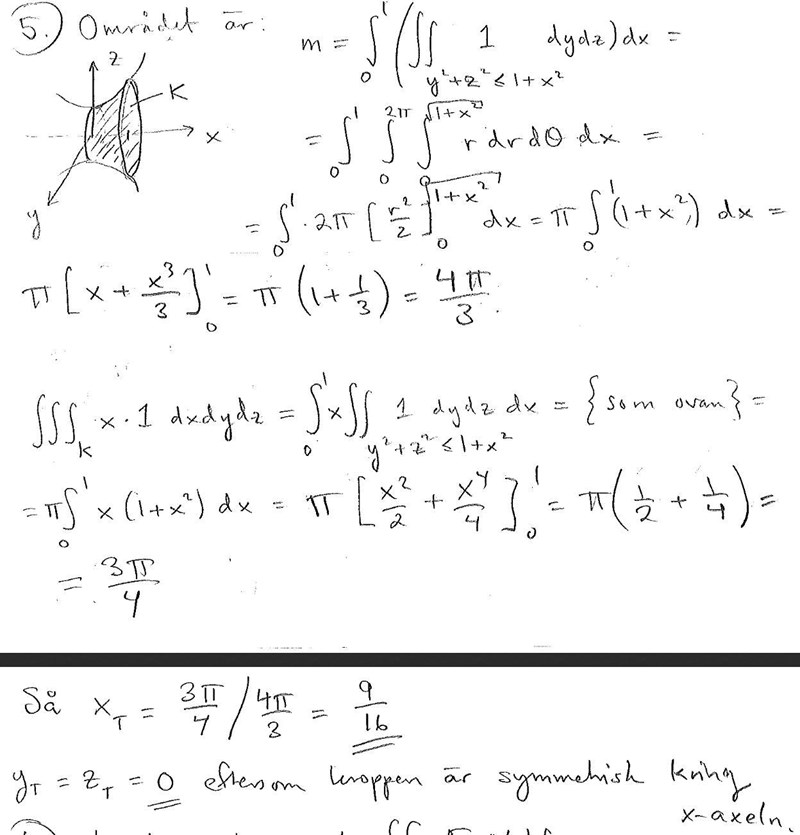 5. Området är:
m = ∫₀¹ (∬_{y²+z² ≤ 1+x²} 1 dydz) dx =
z
K
x
1
y
= ∫₀¹ ∫₀^{2π} ∫₀^{√(1+x²)} r dr dθ dx =
= ∫₀¹ · 2π [r²/2]₀^{√(1+x²)} dx = π ∫₀¹ (1+x²) dx =
π [x + x³/3]₀¹ = π (1 + 1/3) = 4π/3.
∭_K x · 1 dxdydz = ∫₀¹ x ∬_{y²+z² ≤ 1+x²} 1 dydz dx = {som ovan} =
= π ∫₀¹ x (1+x²) dx = π [x²/2 + x⁴/4]₀¹ = π (1/2 + 1/4) =
= 3π/4
Så x_T = 3π/4 / 4π/3 = 9/16
y_T = z_T = 0 eftersom kroppen är symmetrisk kring
x-axeln.